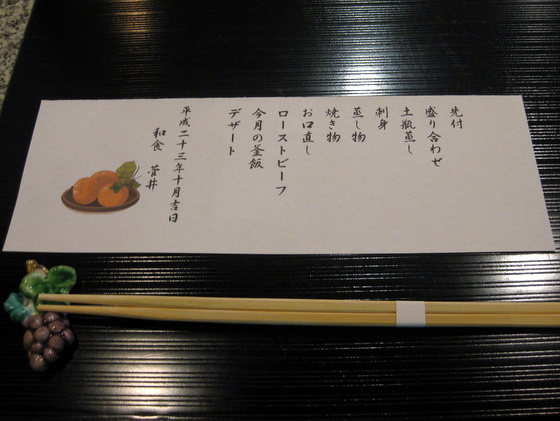 先付
盛り合わせ
土瓶蒸し
刺身
蒸し物
焼き物
お口直し
ローストビーフ
今月の釜飯
デザート
平成二十三年十月吉日
和食 菅井